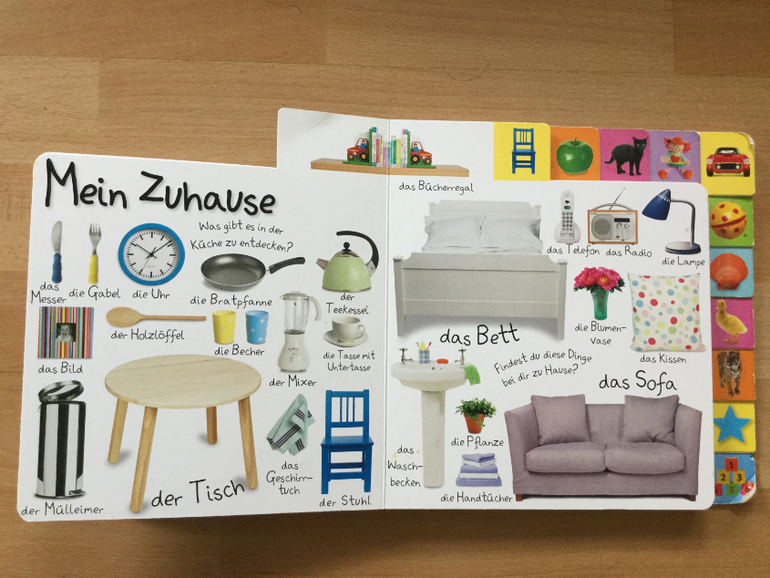 Mein Zuhause
Was gibt es in der
Küche zu entdecken?
das
Messer
die Gabel
die Uhr
die Bratpfanne
der
Teekessel
das Bild
der Holzlöffel
die Becher
der Mixer
die Tasse mit
Untertasse
der Mülleimer
der Tisch
das
Geschirr-
tuch
der Stuhl
das Bücherregal
das Bett
das Telefon
das Radio
die Lampe
die Blumen-
vase
das Kissen
Findest du diese Dinge
bei dir zu Hause?
das Sofa
das
Wasch-
becken
die Pflanze
die Handtücher
1
2
3